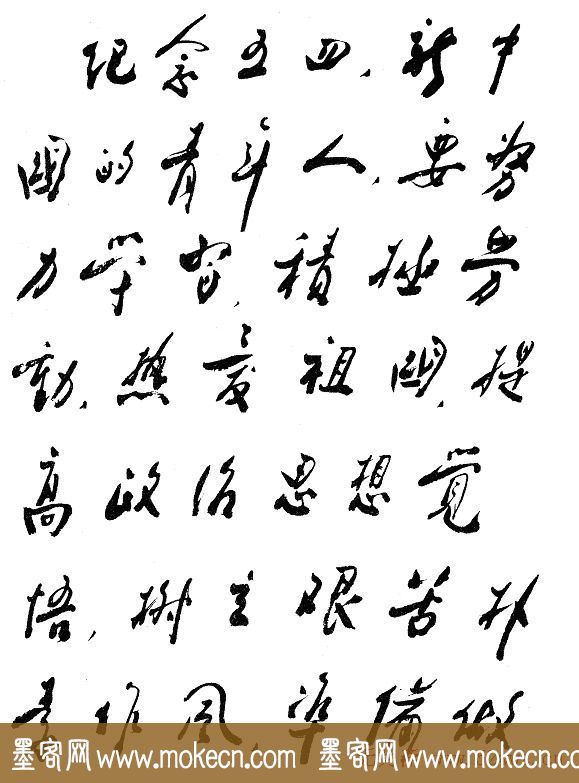 纪念五四，新中
國的青年人，要努
力学習，積極劳
動，热爱祖國，提
高政治思想覚
悟，樹立艰苦朴
素作风，準備做
墨客网 www.mokecn.com 墨客网 www.mokecn.com